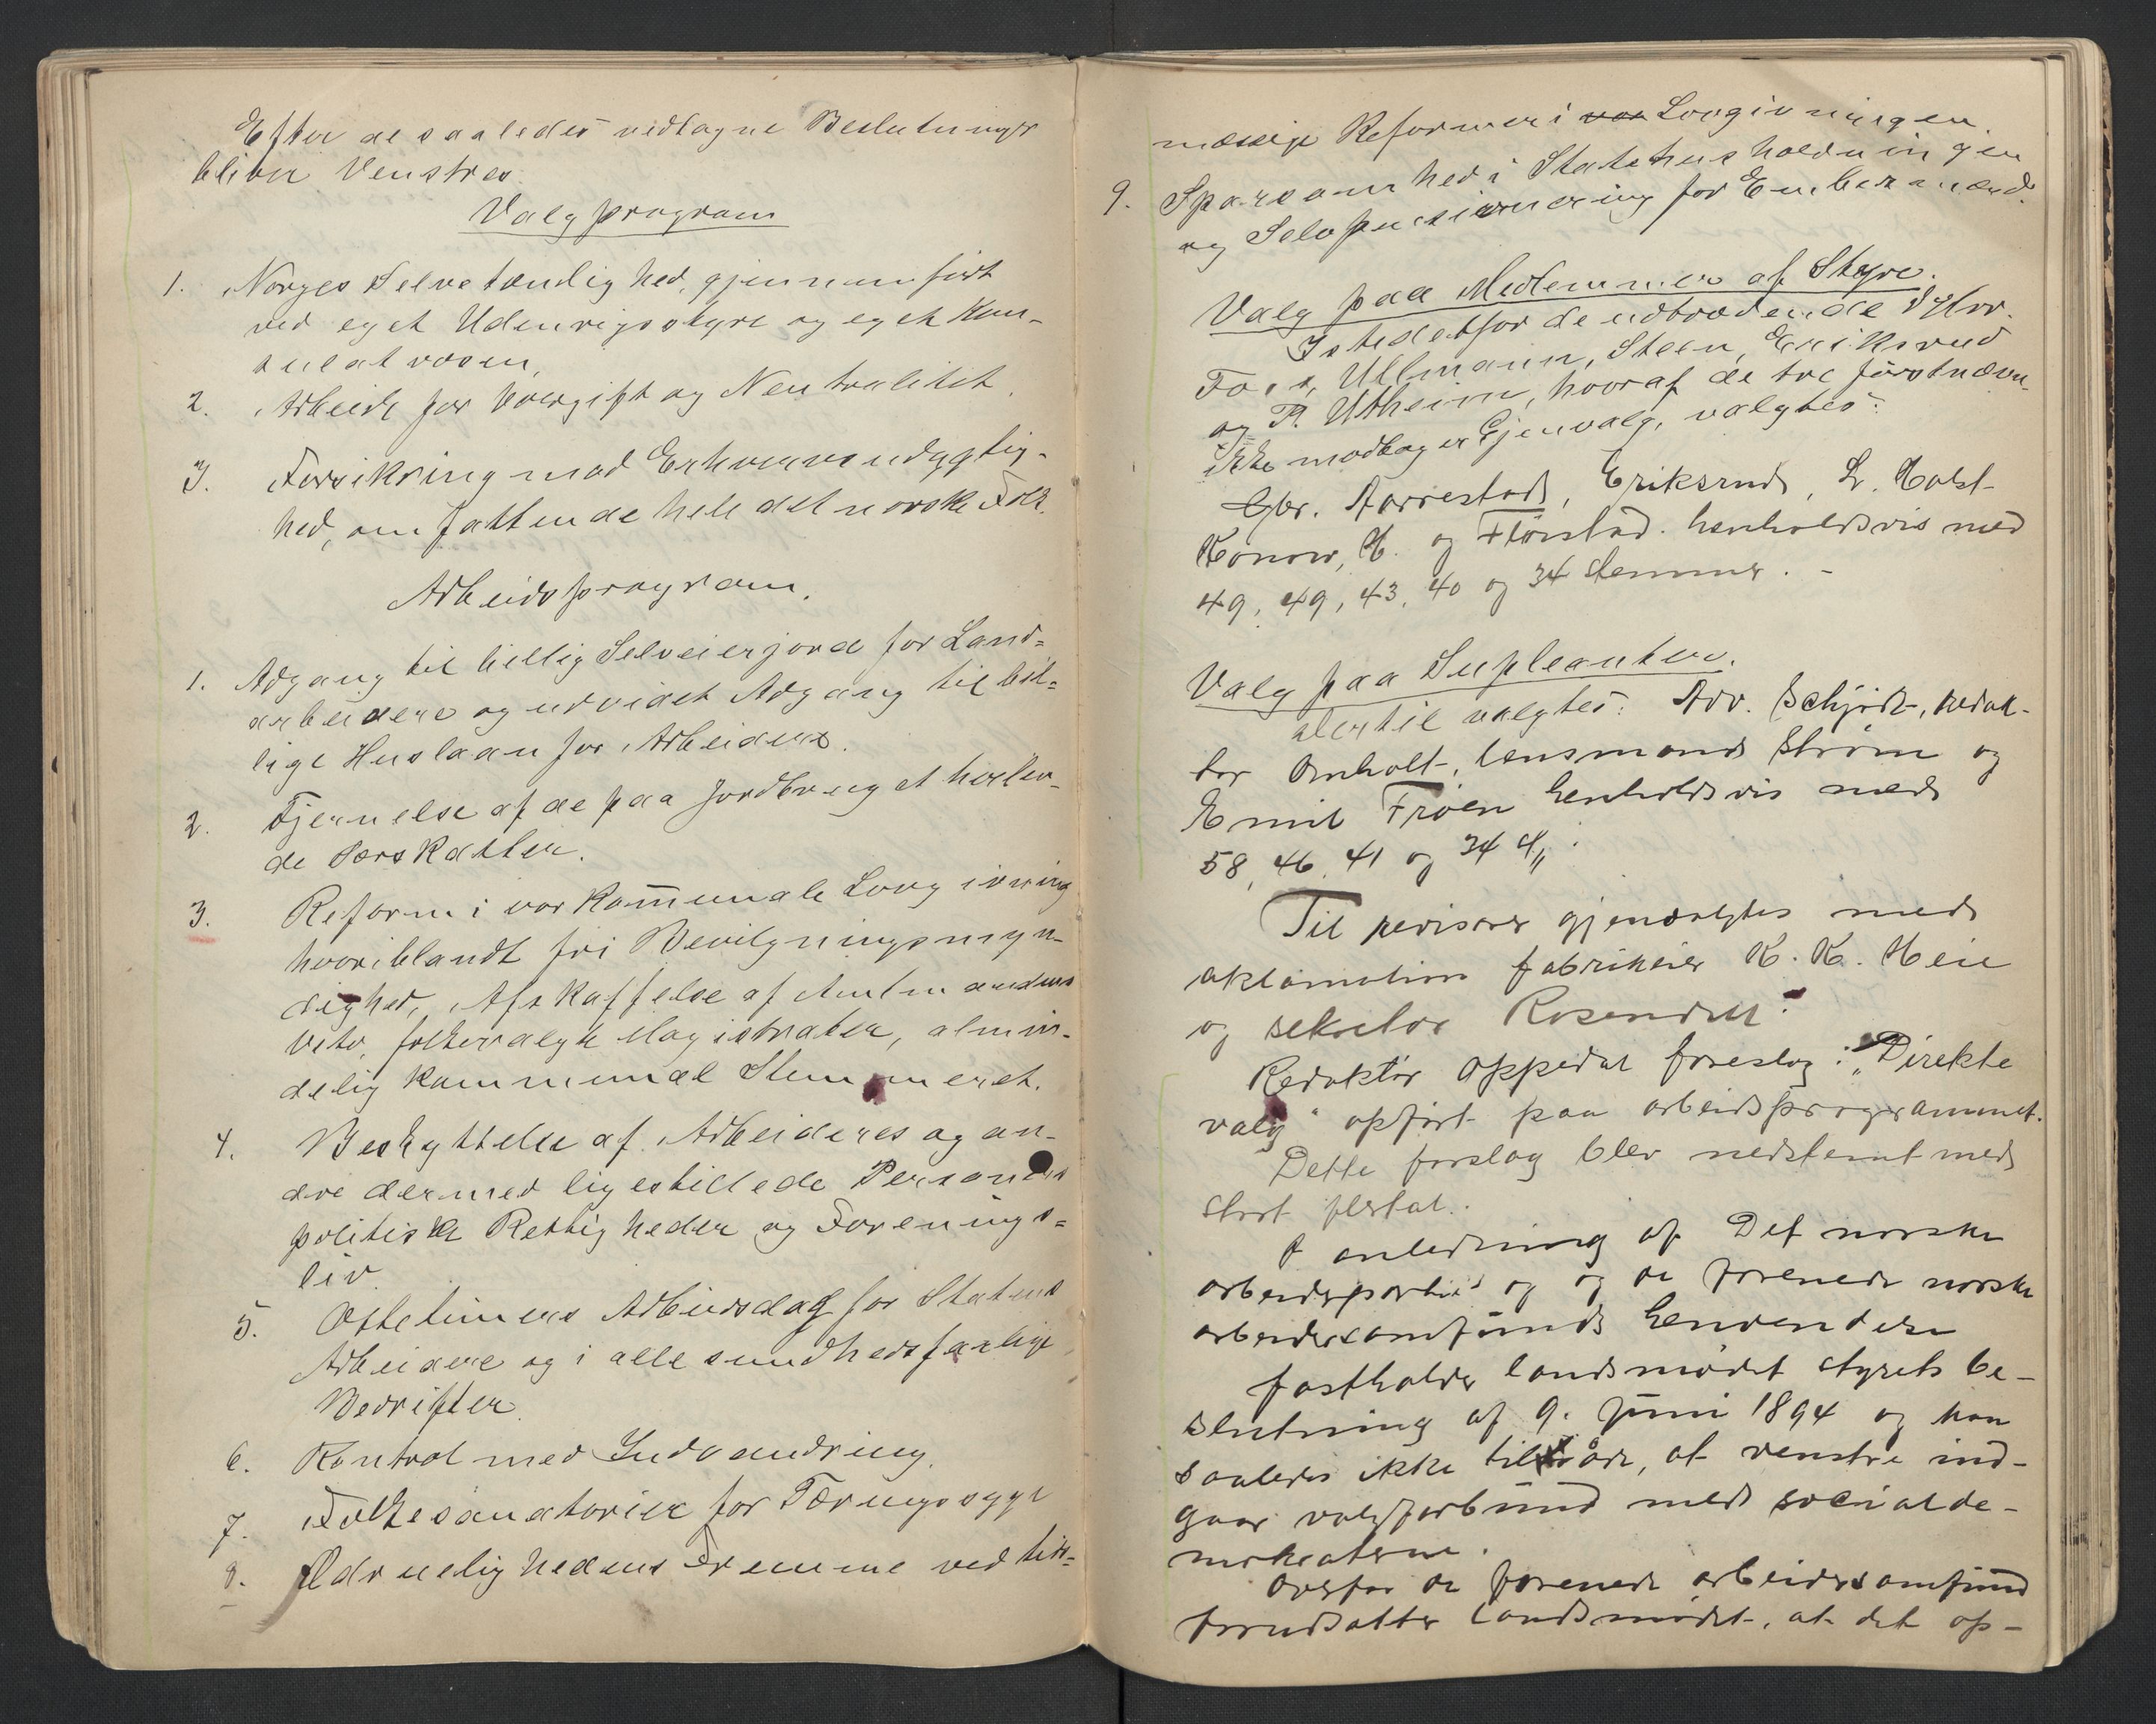 Efter de saaledes vedtagne Beslutninger
bliver Venstres
Valgprogram
1. Norges Selvstændighed, gjennemført
ved eget Udenrigsstyre og eget Kon-
sulatvæsen,
2. Arbeide for Voldgift og Neutralitet.
3. Forsikring mod Erhvervsudygtig-
hed, omfattende hele det norske Folk.
Arbeidsprogram.
1. Adgang til billig Selveierjord for Land=
arbeidere og udvidet Adgang til bil=
lige Huslaan for Arbeidere.
2. Fjernelse af de paa Jordbruget hvilen-
de Særskatter.
3. Reform i vor kommunale Lovgivning
hvoriblandt fri Bevilgningsmyn-
dighed, Afskaffelse af Amtmandens
Veto, folkevalgte Magistrater, almin-
delig kommunal Stemmeret.
4. Beskyttelse af Arbeideres og an-
dre dermed ligestillede Personers
politiske Rettigheder og Forenings=
liv.
5. Ottetimers Arbeidsdag for Statens
Arbeidere og i alle sundhedsfarlige
Bedrifter.
6. Kontrol med Indvandring.
7. Folkesanatorier for Tæringssyge
8. Ædruelighedens Fremme ved hen=
mæssige Reformer i vor Lovgivningen.
9. Sparsomhed i Statshusholdningen
og Selvpensionering for Embedsmænd.
Valg paa Medlemmer af Styre.
Istedetfor de udtrædende DHrr.
Foss, Ullmann, Steen, Eriksrud
og P. Utheim, hvoraf de tre förstnævn-
ikke modtager Gjenvalg, valgtes:
Gbr. Aarrestad, Eriksrud, L. Holst-
Konow, H. og Fløistad. henholdsvis med
49, 49, 43, 40 og 34 stemmer. -
Valg paa Supleanter.
dertil valgtes: Adv. Schjødt, redak-
tør Omholt, lensmand Strøm og
Emil Frøen henholdsvis med
58, 46, 41 og 34 st.
Til revisorer gjenvalgtes med
aklamation fabrikeier K. K. Heie
og sekretær Rosendahl.
Redaktör Oppedal foreslog: "Direkte
valg" opført paa arbeidsprogrammet.
Dette forslag blev nedstemt med
stort flertal.
I anledning af Det norske
arbeiderpartis og og de forenede norske
arbeidersamfunds henvendelse
fastholder landsmødet styrets be-
slutning af 9. juni 1894 og kan
saaledes ikke tilråde, at venstre ind-
gaar valgforbund med socialde-
mokraterne.
Overfor de forenede arbeidersamfund
forudsætter landsmødet, at det op-